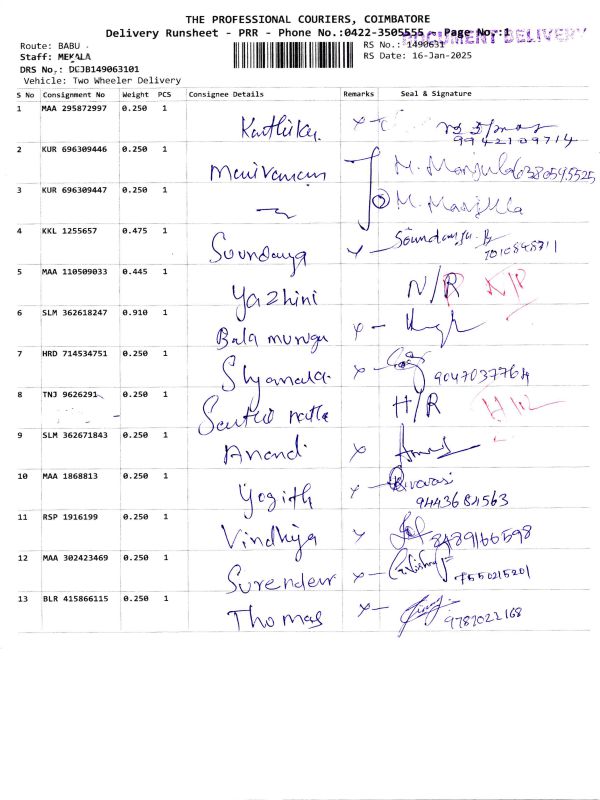 THE PROFESSIONAL COURIERS, COIMBATORE
Delivery Runsheet - PRR - Phone No.:0422-3505555 - Page No.:1
DOCUMENT DELIVERY
Route: BABU
RS No.: 1490631
Staff: MEKALA
RS Date: 16-Jan-2025
DRS No.: DCJB149063101
Vehicle: Two Wheeler Delivery
S No Consignment No Weight PCS Consignee Details Remarks Seal & Signature
1 MAA 295872997 0.250 1 Karthika
9942109714
2 KUR 696309446 0.250 1 Manivannan M. Manjula 6380595525
3 KUR 696309447 0.250 1 M. Manjula
4 KKL 1255657 0.475 1 Soundarya Soundarya
7010848711
5 MAA 110509033 0.445 1 Yazhini N/R
6 SLM 362618247 0.910 1 Bala murugan
7 HRD 714534751 0.250 1 Shyamala 9047037764
8 TNJ 9626291 0.250 1 H/R
9 SLM 362671843 0.250 1 Anand
10 MAA 1868813 0.250 1 Yogith
9443684563
11 RSP 1916199 0.250 1 Vindhiya 8489166598
12 MAA 302423469 0.250 1 Surender 7550215201
13 BLR 415866115 0.250 1 Thomas 9787022168